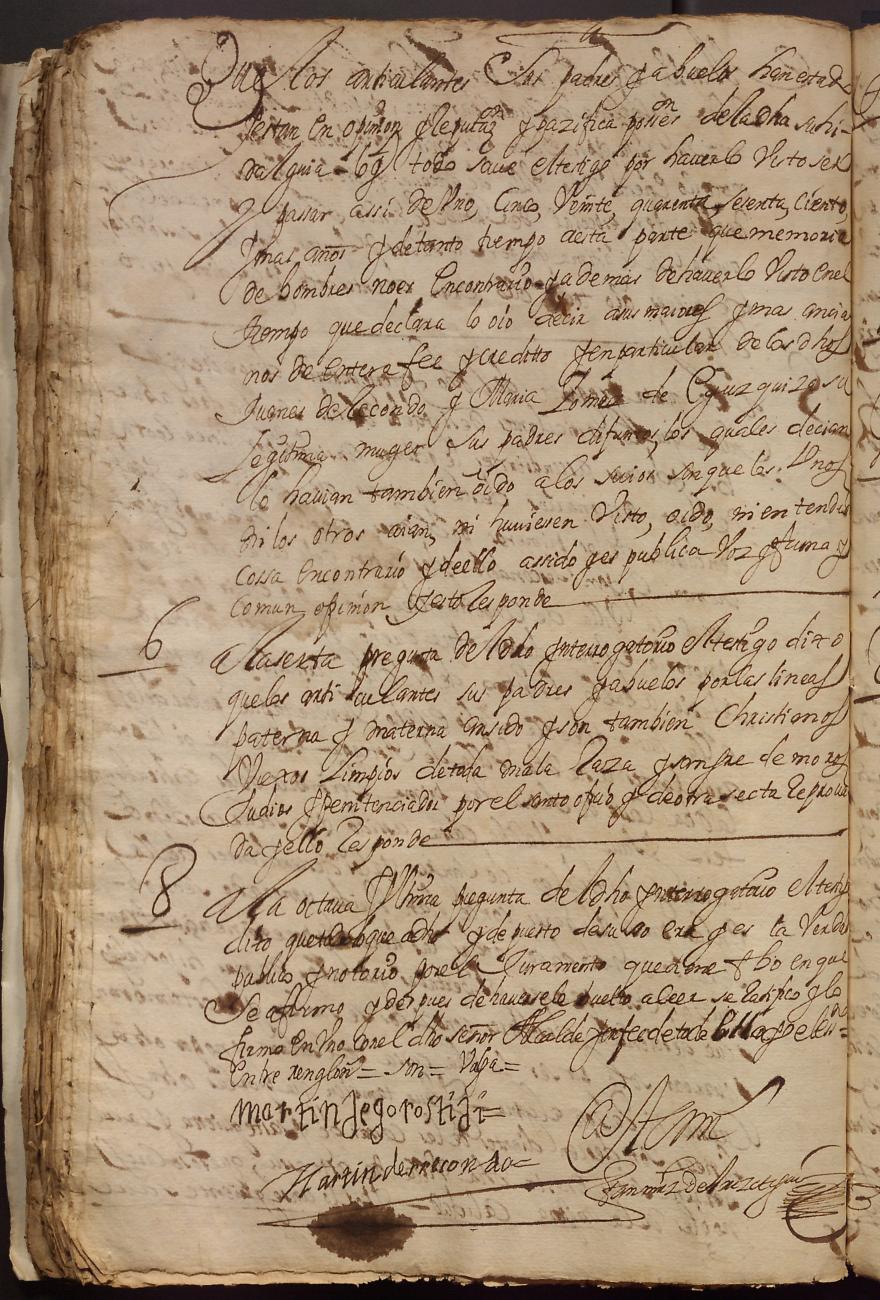 Que los articulantes Sus padres y abuelos han estad
estan en opinion y reputaon y pazifica possèon de la dha su hi-
dalguia lo qe todo save el testigo por haverlo visto ser
y passar assi de Uno, Cinco, Veinte, quarenta, sesenta, ciento,
y mas años y de tanto tiempo aesta parte que memoria
de hombres no es en contrario y ademas de haverlo Visto en el
tiempo que declara lo oió decir asus maiores y mas ancia
nos de entera fee y creditto y en particular de los dhos
Juanes de Recondo y Maria Gomez de Eguzquiza su
legitima muger sus padres difuntos, los quales decian
lo havian tambien oido a los suios sin que los Unos
ni los otros aian, ni huviesen Visto, oido, ni entendido
cossa en contrario y de ello assido y es publica Voz y fama y
comun opinion y esto Responde
6 A la sexta pregunta del dho ynterrogatorio el testigo dixo
que los articulantes sus padres y abuelos por las lineas
paterna y materna an sido y son tambien Christianos
Viexos Limpios de toda mala Raza y sangre de moros
Judios y penitenciados por el santo ofiçio y de otra secta Reprova
da y ello Responde
8 A la octava y Ultima pregunta del dho ynterrogatorio el testigo
dixo que todo lo que a dho y depuesto desusso era y es la Verdad
publico y notorio por el Juramento que tiene fho en que
Se afirmo y despues de haversele buelto a leer se Ratifico y lo
firmo en Uno con el dho señor Alcalde y en fee de todo ello yo el ssno=
Entre renglons= son= Valga=
Martin de gorostidi=
Martin de rrecondo=